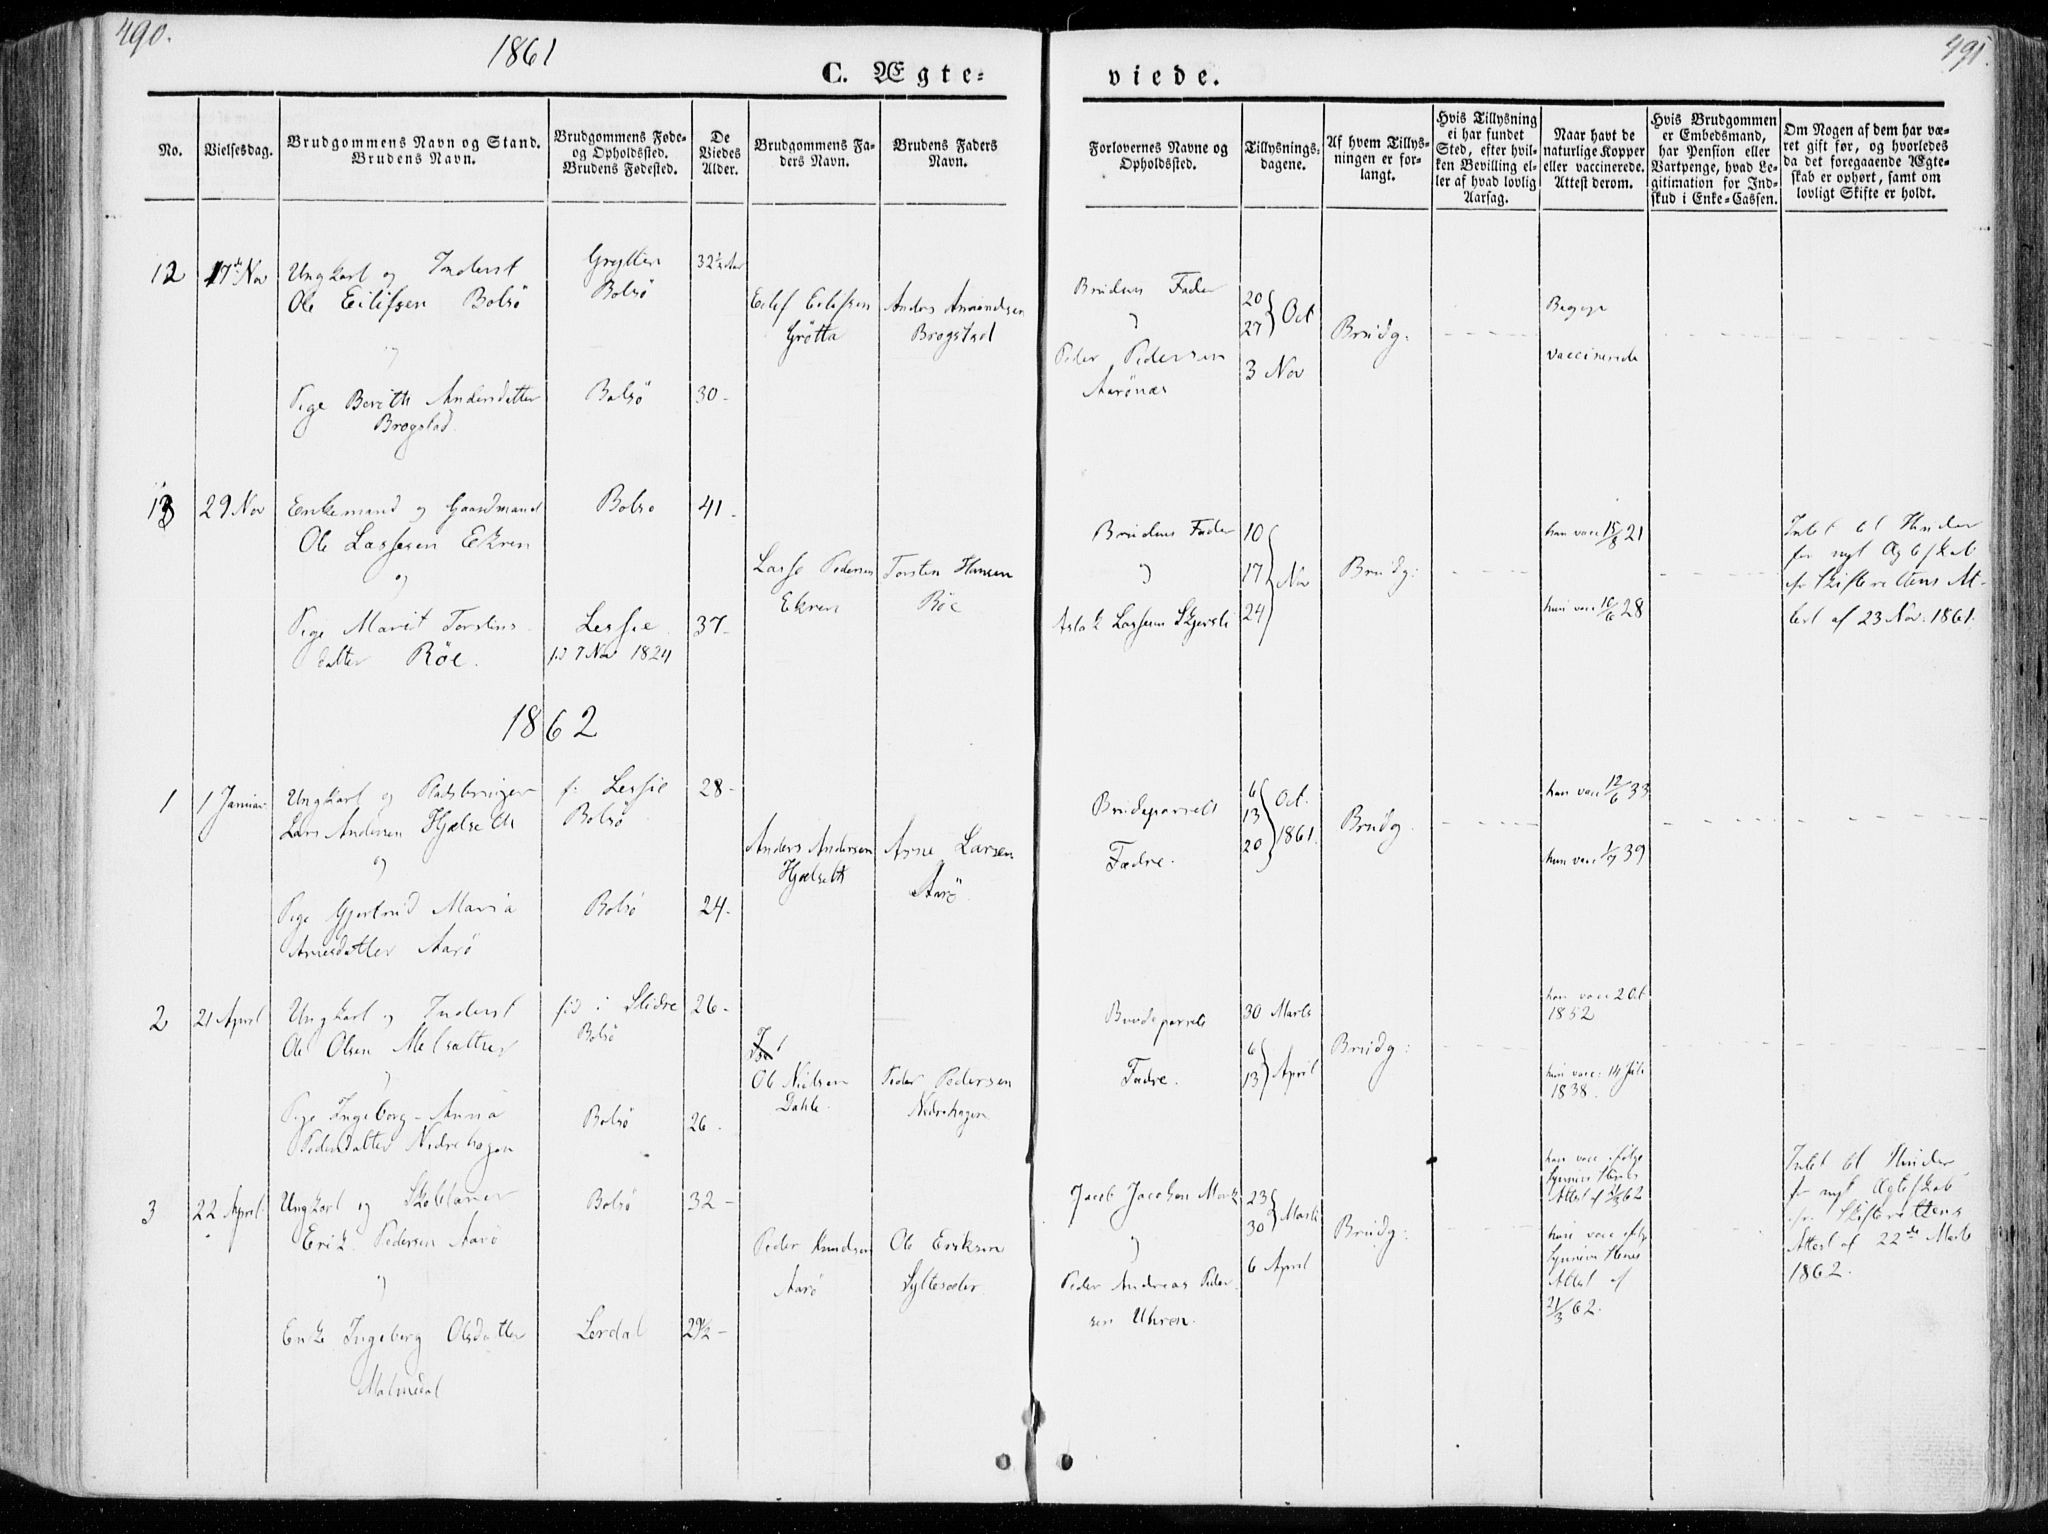 490.
1861
C. Ægte-
viede.
491.
No.
Vielsesdag.
Brudgommens Navn og Stand.
Brudens Navn.
Brudgommens Føde-
og Opholdssted.
Brudens Fødested.
De
Viedes
Alder.
Brudgommens Fa-
ders Navn.
Brudens Faders
Navn.
Forlovernes Navne og
Opholdssted.
Tillysnings-
dagene.
Af hvem Tillys-
ningen er for-
langt.
Hvis Tillysning
ei har fundet
Sted, efter hvil-
ken Bevilling el-
ler af hvad lovlig
Aarsag.
Naar havt de
naturlige Kopper
eller vaccinerede.
Attest derom.
Hvis Brudgommen
er Embedsmand,
har Pension eller
Vartpenge, hvad Le-
gitimation for Ind-
skud i Enke-Cassen.
Om Nogen af dem har væ-
ret gift før, og hvorledes
da det foregaaende Ægte-
skab er ophørt, samt om
lovligt Skifte er holdt.
12
17de Nov
Ungkarl og Inderst
Ole Eilifsen Bolsö
og
Pige Berith Andersdatter
Brogstad.
Grytten
Bolsö
Bolsö
32½ Aar
30 -
Eilif Eilifsen
Grötta
Anders Amundsen
Brogstad
Brudens Fader
og
Peder Pedersen
Aarönæs
20
27 } Oct
3 Nov
Brudg:
Begge
vaccinerede
13
29 Nov
Enkemand og Gaardmand
Ole Lassesen Ekren
og
Pige Marit Torstens-
datter Röe.
Bolsö
Lessie
fød 7 Nov 1824
41 -
37 -
Lasse Pedersen
Ekren
Torsten Hansen
Röe
Brudens Fader
og
Aslak Lassesen Skjersli
10
17 } Nov
24
Brudg:
han vacc 15/8 21
hun vacc 10/6 28
Intet til Hinder
for nyt Ægteskab
efr Skifterettens At-
test af 23 Nov. 1861.
1862
1
1 Januar
Ungkarl og Pladsbruger
Lars Andersen Hjælseth
og
Pige Gjertrud Maria
Arnesdatter Aarö
f: Lessie
Bolsö
Bolsö
28 -
24 -
Anders Andersen
Hjælseth
Arne Larsen
Aarö
Brudeparrets
Fædre.
6
13 } Oct.
20 1861.
Brudg.
han vacc 12/6 33
hun vacc 1/7 39
2
21 April
Ungkarl og Inderst
Ole Olsen Melsætter
og
Pige Ingeborg-Anna
Pedersdatter Nedrehagen
fød i Slidre
Bolsö
Bolsö
26 -
26 -
Ole Nielsen
Dahle.
Peder Pedersen
Nedrehagen
Brudeparrets
Fædre.
30 Marts
6
13 } April
Brudg:
han vacc 2 Oct
1852
hun vacc: 14 Juli
1838.
3
22 April
Ungkarl og Skolelærer
Erik Pedersen Aarö
og
Enke Ingeborg Olsdatter
Malmedal
Bolsö
Lerdal
32 -
29½ -
Peder Knudsen
Aarö
Ole Eriksen
Syltesæter.
Jacob Jacobsen Mork
og
Peder Andreas Peder-
sen Uhren.
23
30 } Marts
6 April
Brudg:
han vacc ifølge
Attest af 21/3 62
hun vacc ifølge
Attest af
21/3 62.
Intet til Hinder
for nyt Ægteskab
efr. Skifterettens
Attest af 22de Marts
1862.